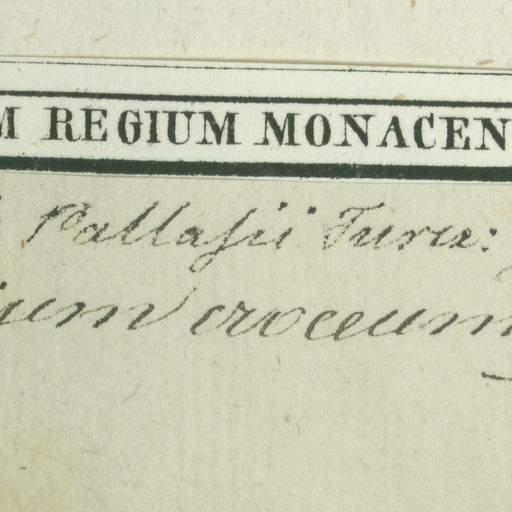 M REGIUM MONACEN
Pallasii Turcz:
ium croceum